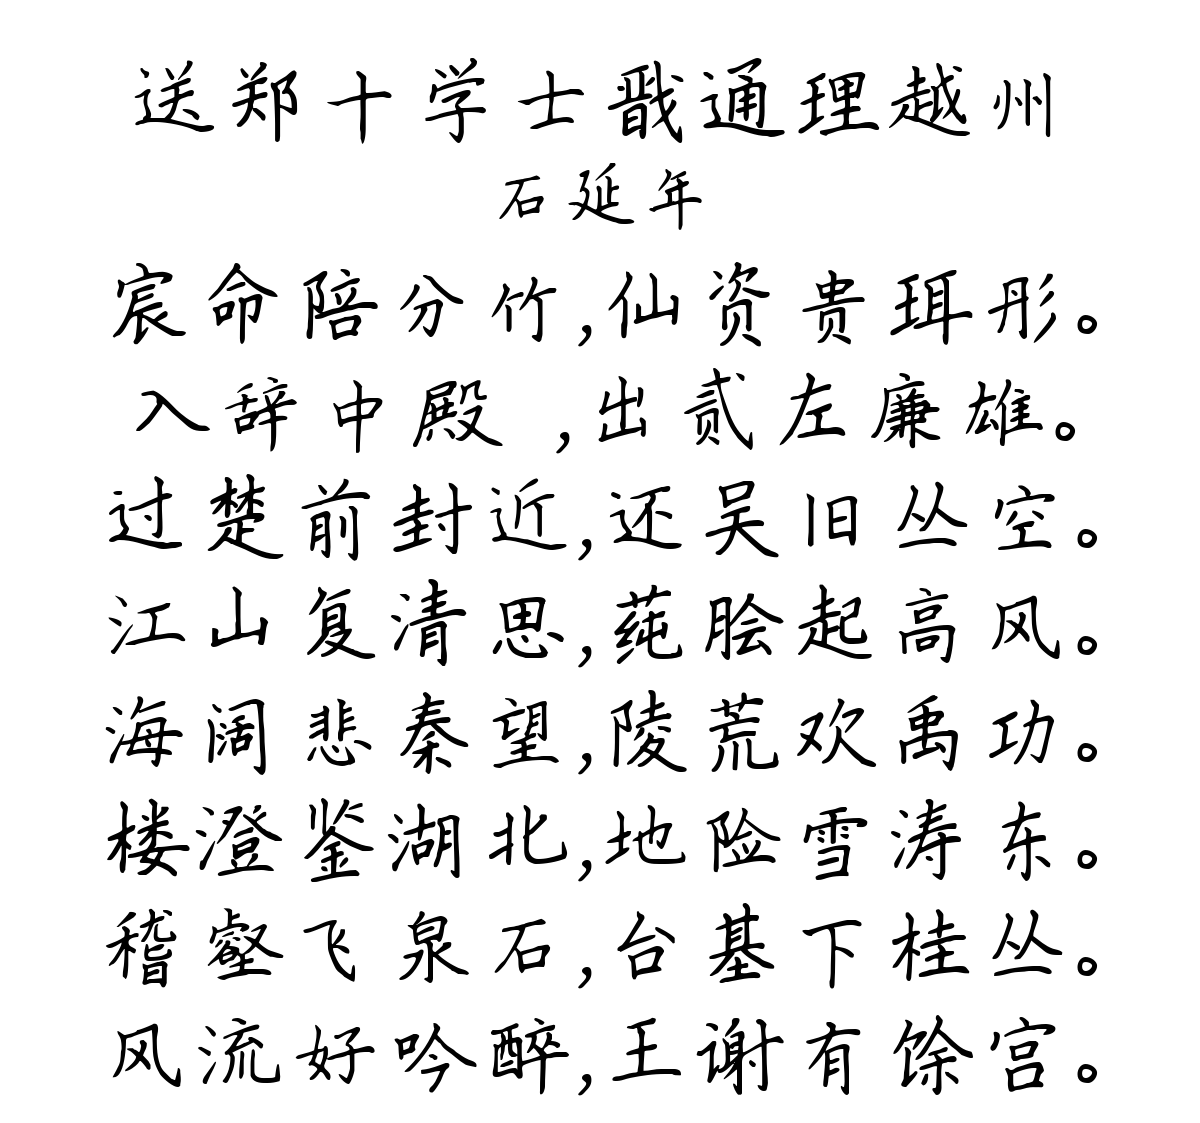 送郑十学士戬通理越州
石延年
宸命陪分竹,仙资贵珥彤。
入辞中殿 ,出贰左廉雄。
过楚前封近,还吴旧丛空。
江山复清思,莼脍起高风。
海阔悲秦望,陵荒欢禹功。
楼澄鉴湖北,地险雪涛东。
稽壑飞泉石,台基下桂丛。
风流好吟醉,王谢有馀宫。